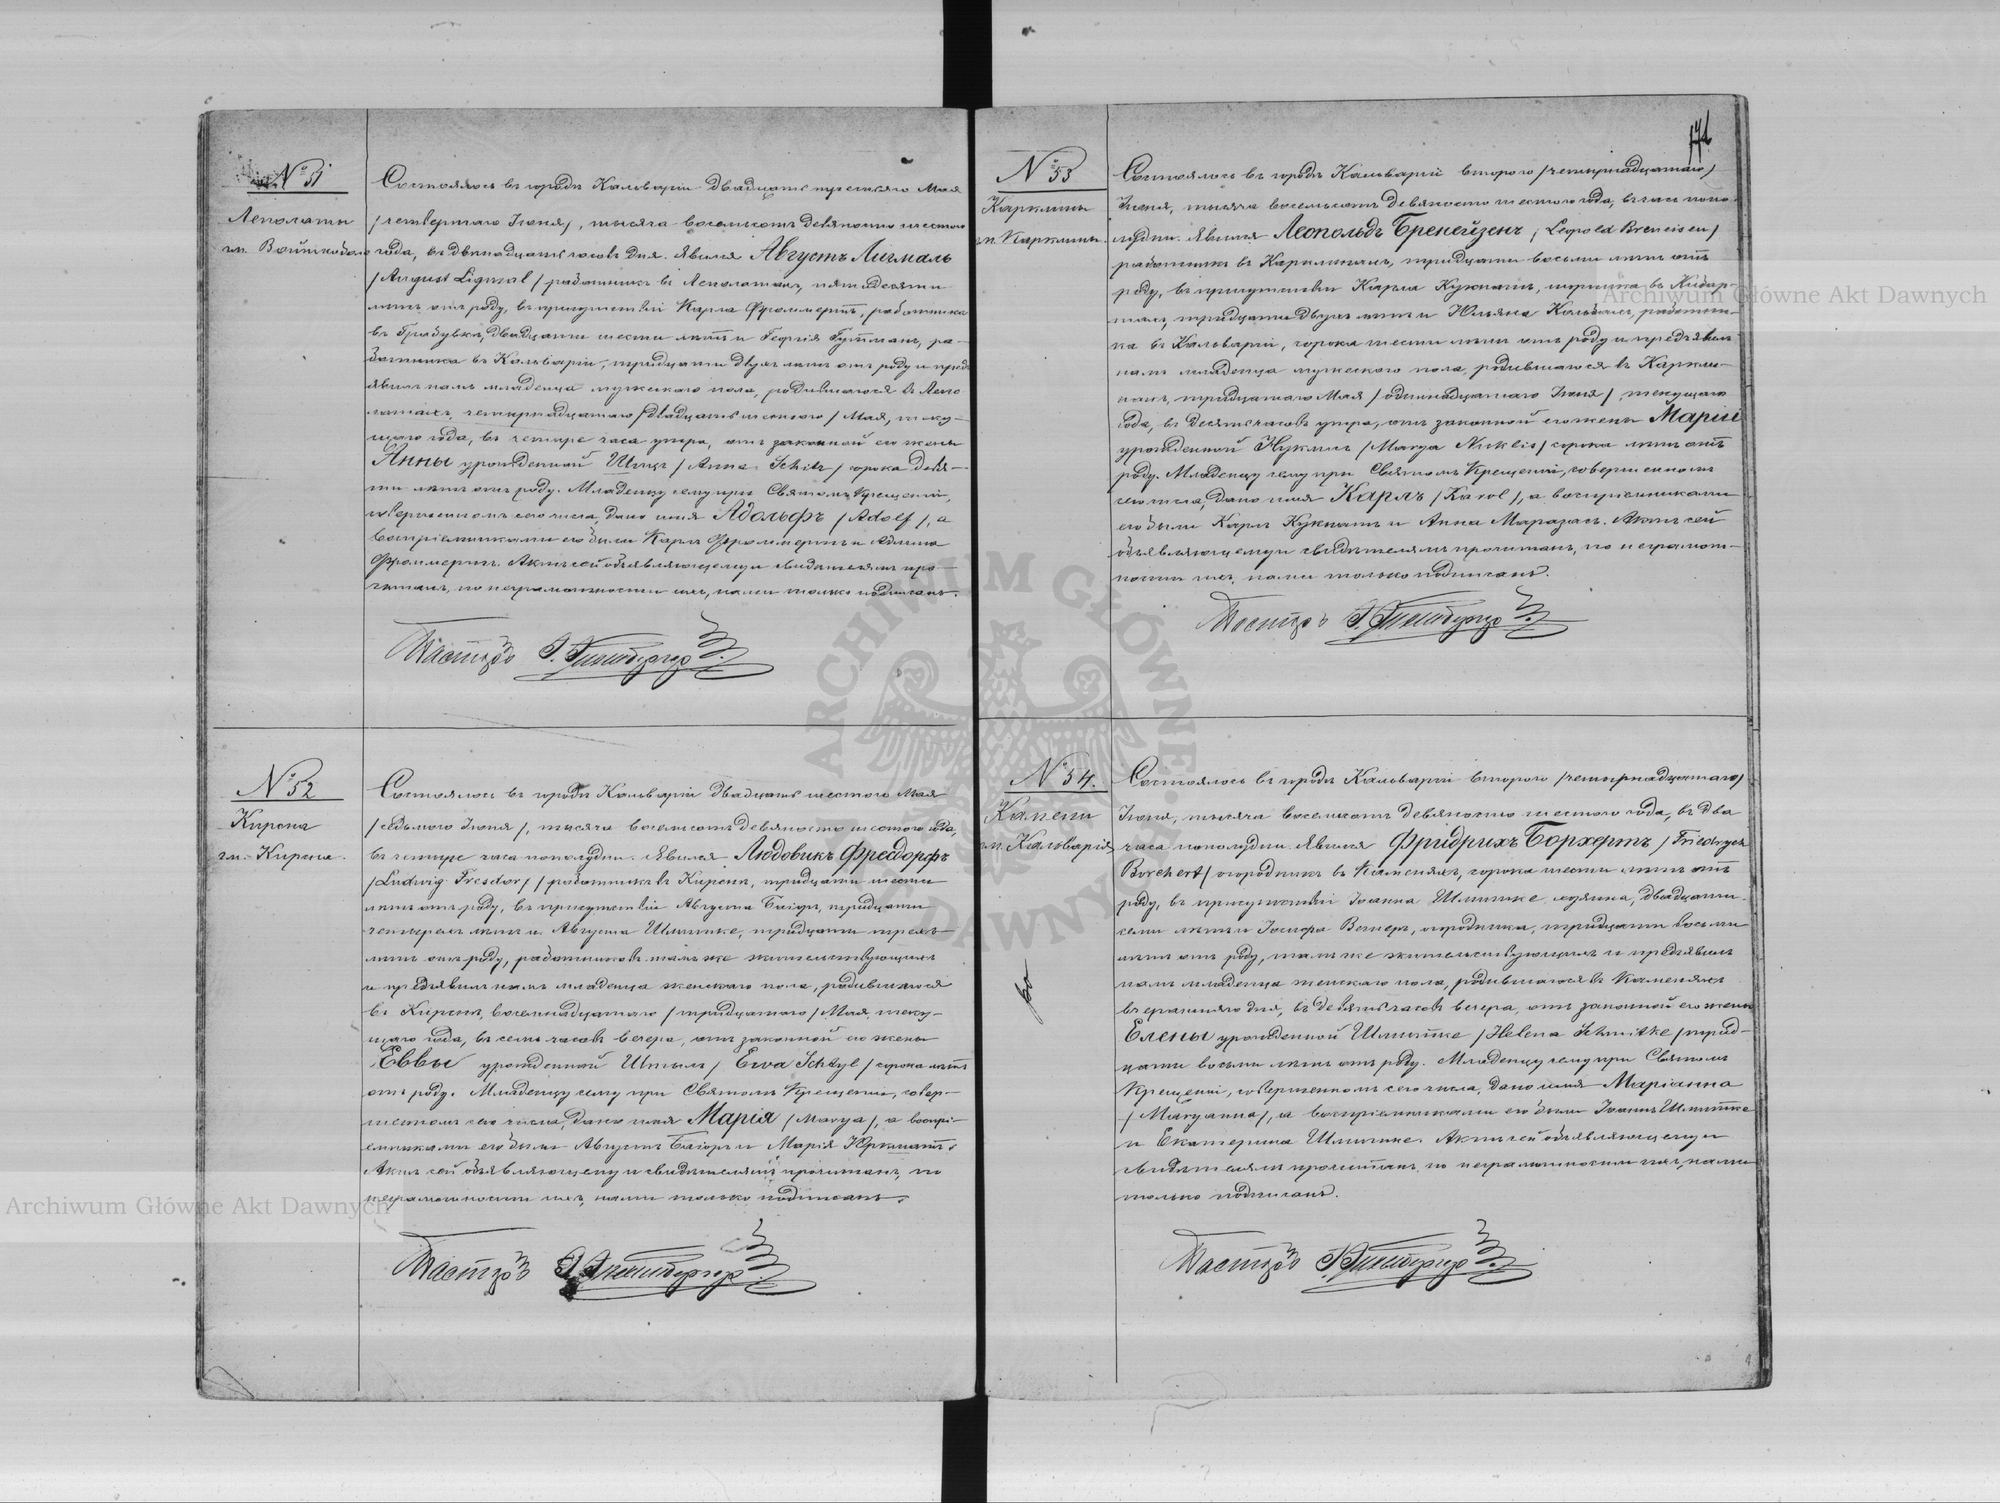 № 51
Лепалаты
гм. Войткобол
Состоялось въ городѣ Кальваріи двадцать третьяго Мая
/четвертаго Іюня/, тысяча восемьсотъ девяносто шестого
года, въ двѣнадцать часовъ дня. Явился Августъ Лигмаль
/August Ligmal/ работникъ въ Лепалатахъ, пятидесяти
лѣтъ отъ роду, въ присутствіи Карла Фроммертъ, работника
въ Грабувкѣ, двадцати шести лѣтъ и Георгія Гутманъ, ра-
ботника въ Кальваріи, тридцати двухъ лѣтъ отъ роду и предъ
явилъ намъ младенца мужескаго пола, родившагося въ Лепа
латахъ, четырнадцатаго /двадцать шестого/ Мая, теку-
щаго года, въ четыре часа утра, отъ законной его жены
Анны урожденной Шицъ /Anna Schitz/ сорока девя-
ти лѣтъ отъ роду. Младенцу сему при Святомъ Крещеніи,
совершенномъ сего числа, дано имя Адольфъ /Adolf/, а
воспріемниками его были Карлъ Фроммертъ и
Фроммертъ. Актъ сей объявляющему и свидѣтелямъ про-
читанъ, по неграмотности ихъ, нами только подписанъ.
Пасторъ
№ 52
Кирсна
гм. Кирсна.
Состоялось въ городѣ Кальваріи двадцать шестого Мая
/седьмого Іюня/, тысяча восемьсотъ девяносто шестого года,
въ четыре часа пополудни. Явился Людовикъ Фресдорфъ
/Ludwig Fresdorf/ работникъ въ Кирснѣ, тридцати шести
лѣтъ отъ роду, въ присутствіи Августа Бигоръ, тридцати
четырехъ лѣтъ и Августа Шмитке, тридцати трехъ
лѣтъ отъ роду, работниковъ тамъ же жительствующихъ
и предъявилъ намъ младенца женскаго пола, родившагося
въ Кирснѣ, восемнадцатаго /тридцатаго/ Мая, теку-
щаго года, въ семь часовъ вечера, отъ законной его жены
Еввы урожденной Штыль /Ewa Schtyl/ сорока лѣтъ
отъ роду. Младенцу сему при Святомъ Крещеніи, совер-
шенномъ сего числа, дано имя Марія /Marya/, а воспрі-
емниками его были Августъ Бигоръ и Марія Юркшатъ.
Актъ сей объявляющему и свидѣтелямъ прочитанъ, по
неграмотности ихъ, нами только подписанъ.
Пасторъ
№ 53
Карклины
гм. Карклины.
Состоялось въ городѣ Кальваріи второго /четырнадцатаго/
Іюня, тысяча восемьсотъ девяносто шестого года, въ часъ попо-
лудни. Явился Леопольдъ Бренейзенъ /Leopold Breneisen/
работникъ въ Карклинахъ, тридцати восьми лѣтъ отъ
роду, въ присутствіи Карла Кукнатъ, въ
тридцати двухъ лѣтъ и Юльяна работни-
ка въ Кальваріи, сорока шести лѣтъ отъ роду и предъявилъ
намъ младенца мужескаго пола, родившагося въ Каркли-
нахъ, тридцатаго Мая /одиннадцатаго Іюня/, текущаго
года, въ десять часовъ утра, отъ законной его жены Маріи
урожденной Нуклисъ /Marya Nuklis/ сорока лѣтъ отъ
роду. Младенцу сему при Святомъ Крещеніи, совершенномъ
сего числа, дано имя Карлъ /Karol/, а воспріемниками
его были Карлъ Кукнатъ и Анна Маразасъ. Актъ сей
объявляющему и свидѣтелямъ прочитанъ, по неграмот-
ности ихъ, нами только подписанъ.
Пасторъ
№ 54.
Камени
гм. Кальварія
Состоялось въ городѣ Кальваріи второго /четырнадцатаго/
Іюня, тысяча восемьсотъ девяносто шестого года, въ два
часа пополудни. Явился Фридрихъ Борхертъ /Friedrych
Borchert/ огородникъ въ Каменяхъ, сорока шести лѣтъ отъ
роду, въ присутствіи Іоанна Шмитке двадцати
семи лѣтъ и Іосифа Вегнеръ, огородника, тридцати восьми
лѣтъ отъ роду, тамъ же жительствующихъ и предъявилъ
намъ младенца женскаго пола, родившагося въ Каменяхъ
вчерашняго дня, въ девять часовъ вечера, отъ законной его жены
Елены урожденной Шмитке /Helena Schmitke/ трид-
цати восьми лѣтъ отъ роду. Младенцу сему при Святомъ
Крещеніи, совершенномъ сего числа, дано имя Маріанна
/Maryanna/, а воспріемниками его были Іоаннъ Шмитке
и Екатерина Шмитке. Актъ сей объявляющему и
свидѣтелямъ прочитанъ, по неграмотности ихъ, нами
только подписанъ.
Пасторъ
Archiwum Główne Akt Dawnych
Archiwum Główne Akt Dawnych
ARCHIWUM GŁÓWNE AKT DAWNYCH